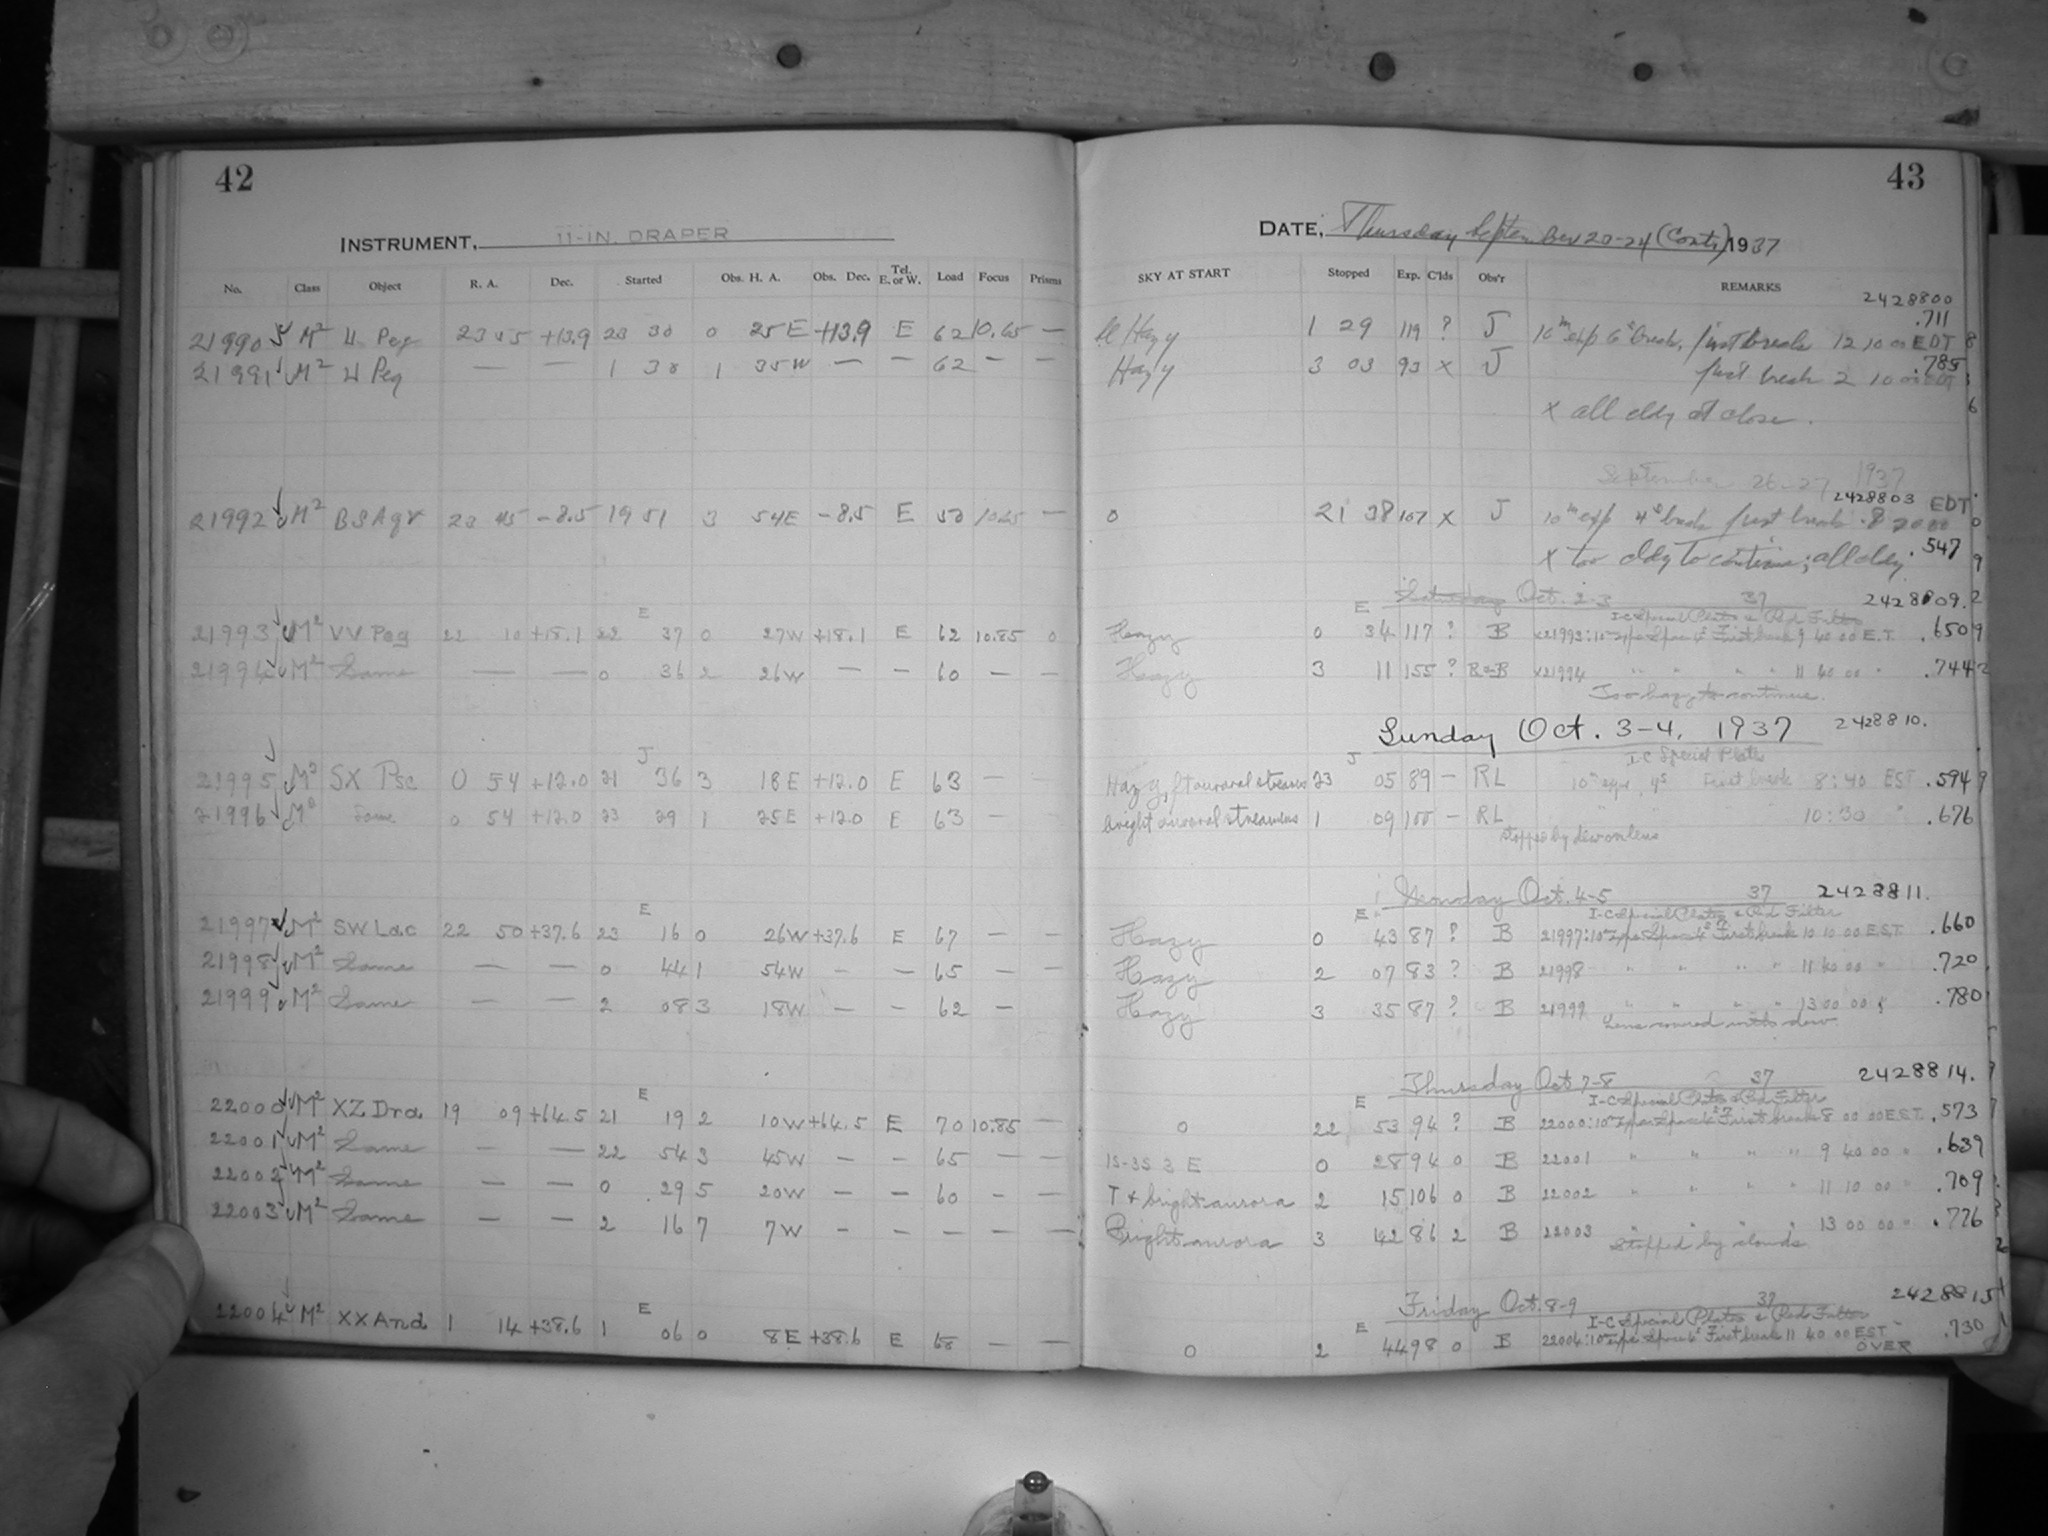 42
INSTRUMENT, 11-IN. DRAPER
No. Class Object R. A. Dec. Started Obs. H. A. Obs. Dec. Tel. E. or W. Load Focus Prisms
21990 M² U Peg 23 +13.9 23 30 0 25E +13.9 E 62 10.65 —
21991 M² U Peg — — 1 30 1 35W — — 62 —
21992 M² BS Aqr 23 45 -8.5 19 51 3 54E -8.5 E 50 10.65 —
E
21993 M² VV Peg 22 10 +18.1 22 37 0 27W +18.1 E 62 10.85 0
21994 M² Same — — 0 36 2 26W — — 60 — —
J
21995 M² SX Psc 0 54 +12.0 21 36 3 18E +12.0 E 63 — —
21996 M² Same 0 54 +12.0 23 29 1 25E +12.0 E 63 — —
E
21997 M² SW Lac 22 50 +37.6 23 16 0 26W +37.6 E 67 — —
21998 M² Same — — 0 44 1 54W — — 65 — —
21999 M² Same — — 2 08 3 18W — — 62 —
E
22000 M² XZ Dra 19 09 +64.5 21 19 2 10W +64.5 E 70 10.85 —
22001 M² Same — — 22 54 3 45W — — 65 — —
22002 M² Same — — 0 29 5 20W — — 60 — —
22003 M² Same — — 2 16 7 7W — — — — —
E
22004 M² XX And 1 14 +38.6 1 06 0 8E +38.6 E 68 — —
43
DATE, Thursday September 20-24 (Cont.) 1937
SKY AT START Stopped Exp. C'lds Obs'r REMARKS
2428800
.711
Hazy 1 29 119 ? J 10m exp 6s break, first break 12 10 00 EDT
Hazy 3 03 93 x J first break 2 10 00 EDT .785
x all cldy at close.
September 26-27 1937
2428803 EDT
0 21 38 107 x J 10m exp 4s break first break 8 20 00
x too cldy to continue; all cldy .547
E Saturday Oct. 2-3 37 2428809.
I-C Special Plates & Red Filter
Hazy 0 34 117 ? B x21993: 10m exps Space 4s First break 9 40 00 E.T. .650
Hazy 3 11 155 ? R&B x21994 " " " " 11 40 00 " .744
Too hazy to continue.
Sunday Oct. 3-4, 1937 2428810.
J I-C Special Plate
Hazy, ft auroral streams 23 05 89 — RL 10m exps, 4s First break 8:40 EST .594
bright auroral streamers 1 09 100 — RL " " " 10:30 " .676
Stopped by dew on lens
Monday Oct. 4-5 37 2428811.
E I-C Special Plates & Red Filter
Hazy 0 43 87 ? B 21997: 10m exps Space 4s First break 10 10 00 E.S.T. .660
Hazy 2 07 83 ? B 21998 " " " " 11 40 00 " .720
Hazy 3 35 87 ? B 21999 " " " " 13 00 00 " .780
Lens covered with dew.
Thursday Oct 7-8 37 2428814.
E I-C Special Plates & Red Filter
0 22 53 94 ? B 22000: 10m exps Space 4s First break 8 00 00 E.S.T. .573
1S-3S 3 E 0 28 94 0 B 22001 " " " " 9 40 00 " .639
T & bright aurora 2 15 106 0 B 22002 " " " " 11 10 00 " .709
Bright aurora 3 42 86 2 B 22003 " " " " 13 00 00 " .776
Stopped by clouds
Friday Oct. 8-9 37 2428815
E I-C Special Plates & Red Filter
0 2 44 98 0 B 22004: 10m exps Space 6s First break 11 40 00 EST .730
OVER